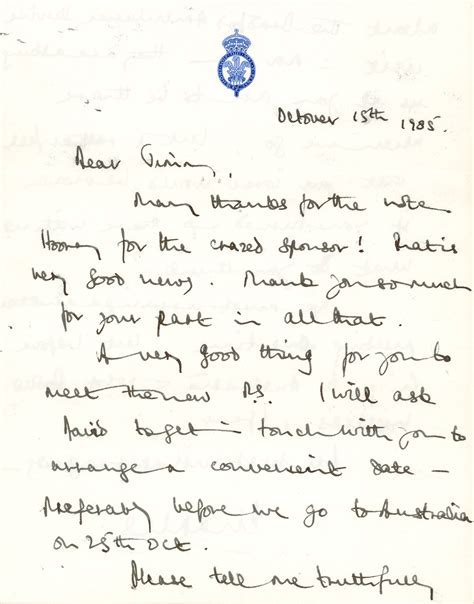 October 15th 1985.
Dear
Many thanks for the note
Hooray for the crazed sponsor! That is
very good news. Thank you so much
for your part in all that.
A very good thing for you to
meet the new P.S. I will ask
David to get in touch with you to
arrange a convenient date –
preferably before we go to Australia
on 25th Oct.
Please tell me truthfully